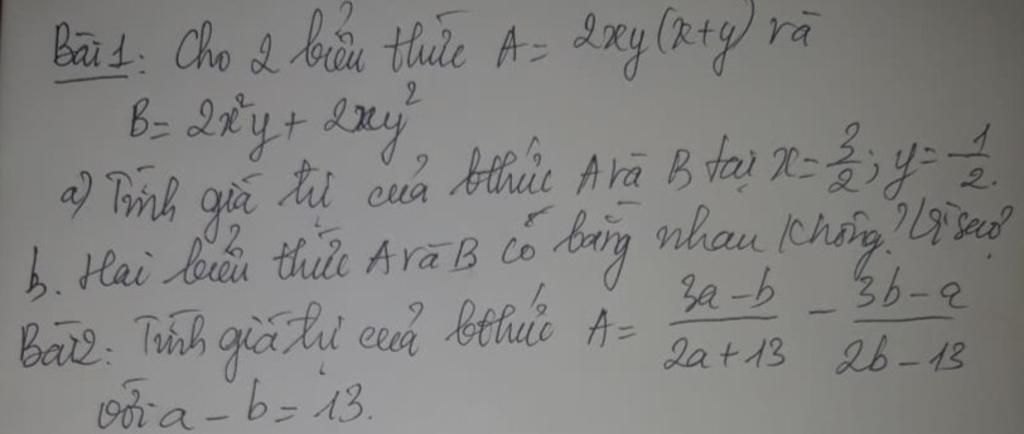 Bài 1: Cho 2 biểu thức A = 2xy(x+y) và
B = 2x²y + 2xy²
a) Tính giá trị của bthức A và B tại x = 3/2; y = 1/2.
b. Hai biểu thức A và B có bằng nhau không? Vì sao?
Bài 2: Tính giá trị của bthức A = (3a - b)/(2a + 13) - (3b - a)/(2b - 13)
với a - b = 13.